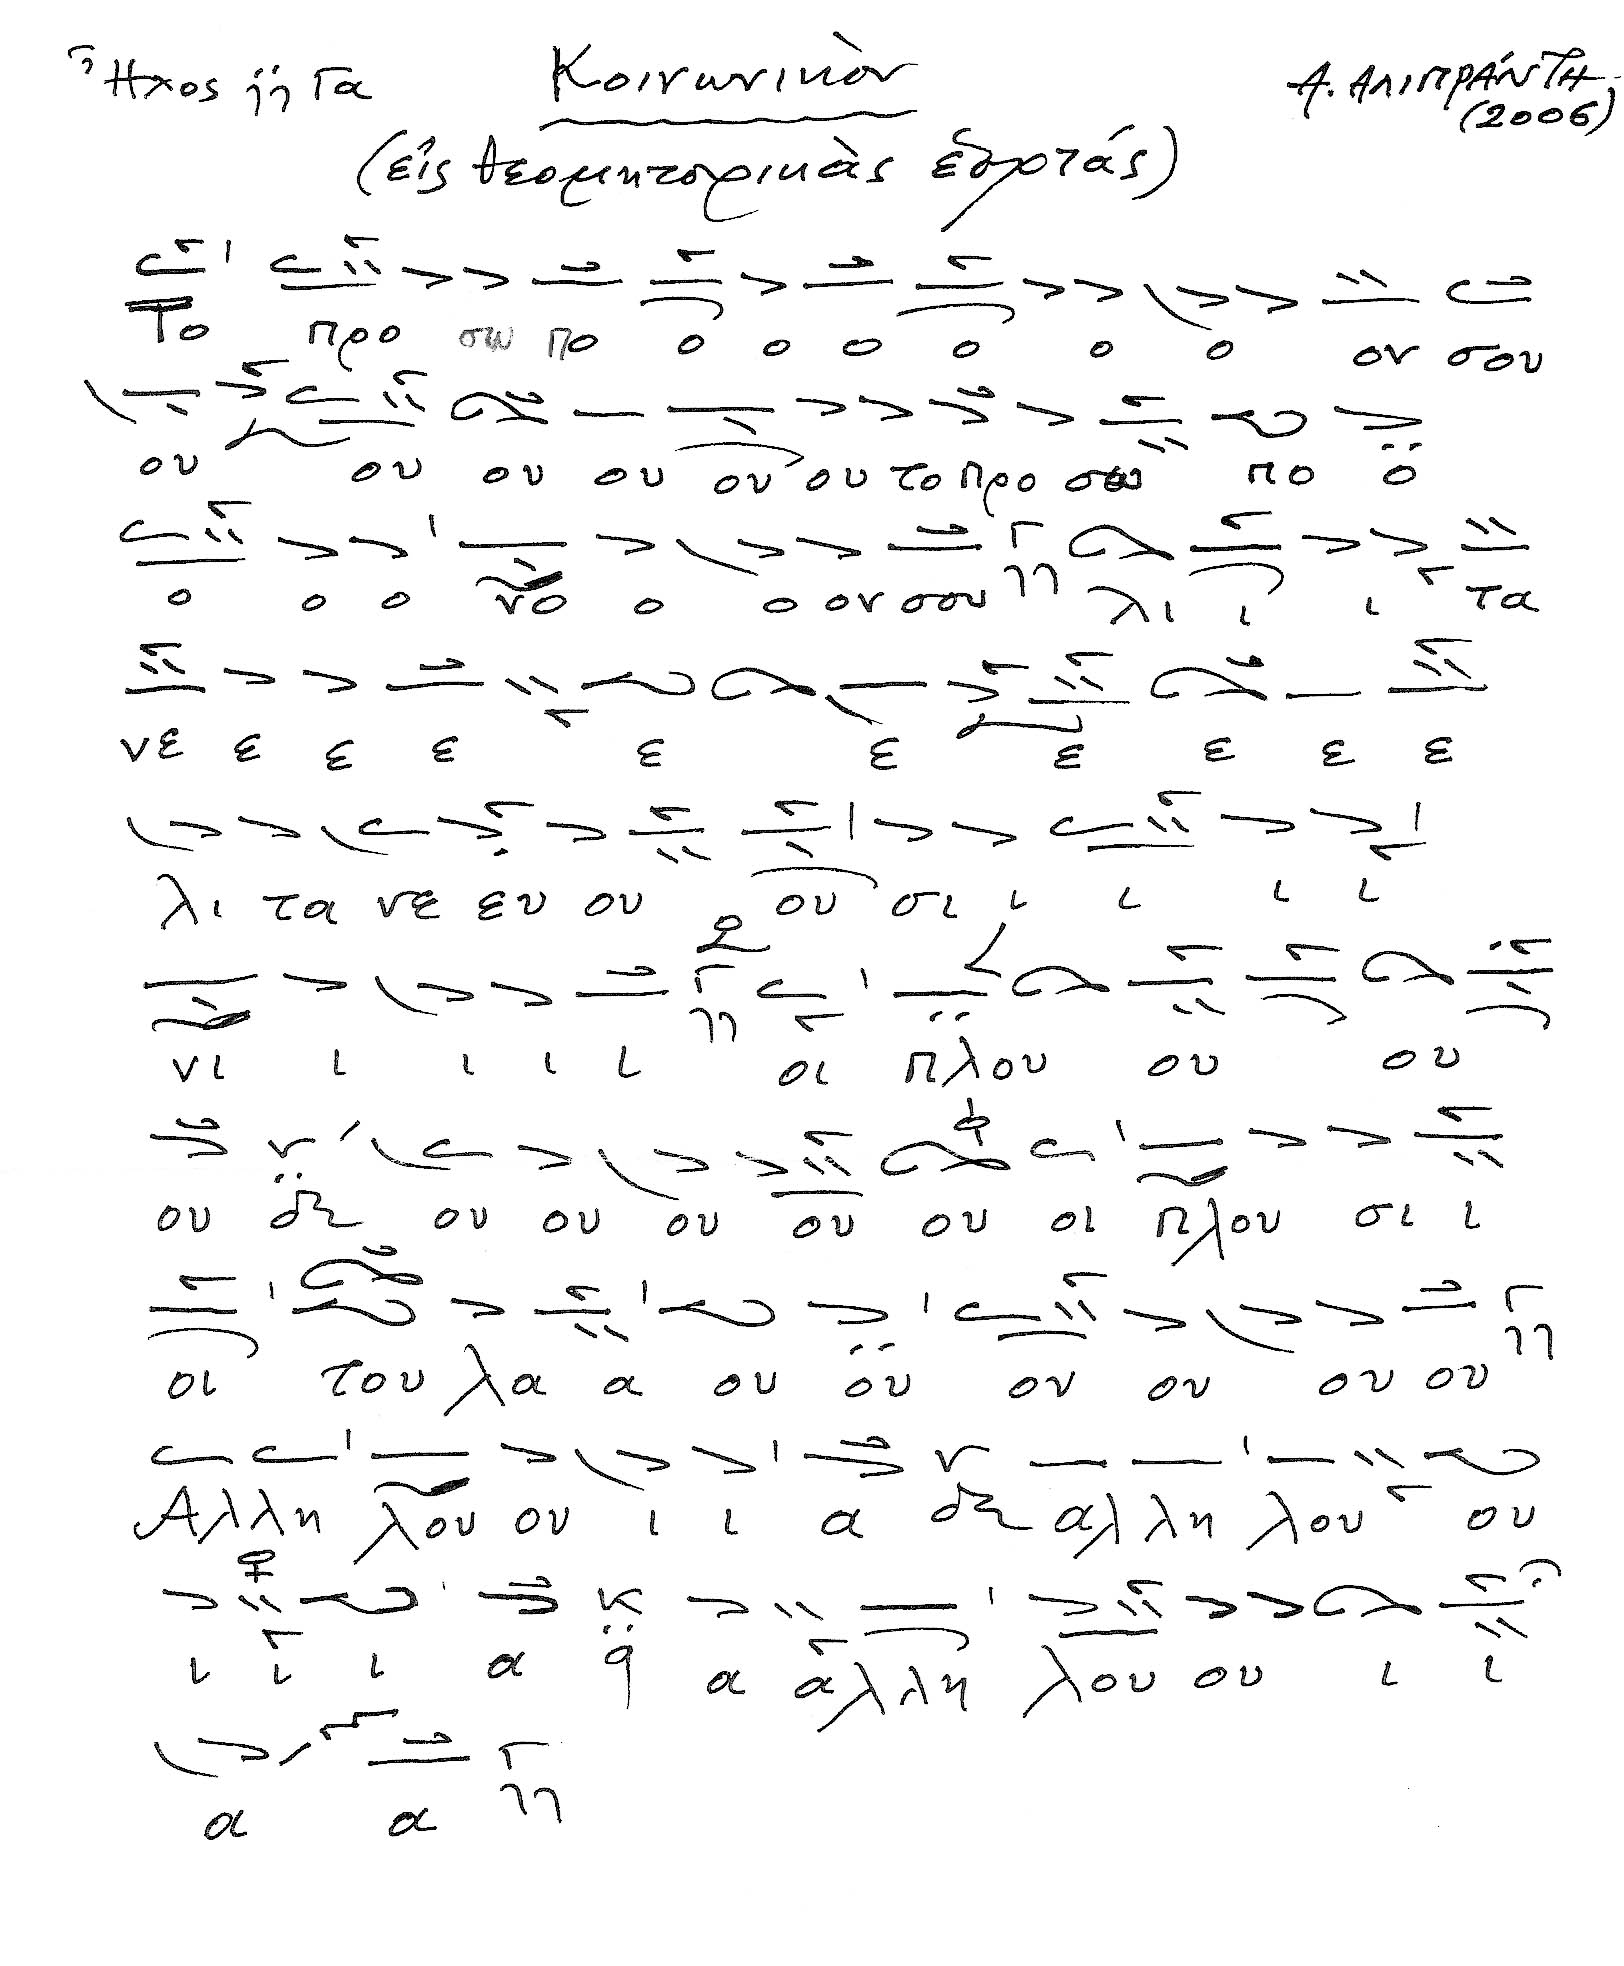 Ἦχος γ̈ Γα Κοινωνικὸν Α. ΑΛΙΠΡΑΝΤΗ
(2006)
(εἰς θεομητορικὰς ἑορτάς)
Το προ σω πο ο ο ο ο ο ο ον σου
ου ου ου ου ου ου το προ σω πο ο
ο ο ο νο ο ο ον σου λι ι ι τα
νε ε ε ε ε ε ε ε ε ε
λι τα νε ευ ου ου σι ι ι ι ι
νι ι ι ι ι οι πλου ου ου
ου δι ου ου ου ου ου οι πλου σι ι
οι του λα α ου ου ου ου ου ου
Αλλη λου ου ι ι α δι αλλη λου ου
ι ι ι α α αλλη λου ου ι ι
α α